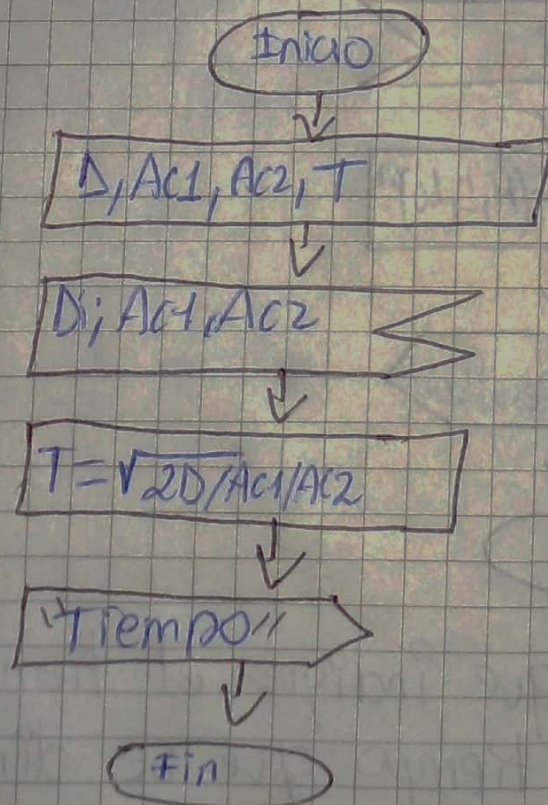 Inicio
D, Ac1, Ac2, T
Di; Ac1, Ac2
T = √2D/Ac1/Ac2
"Tiempo"
Fin